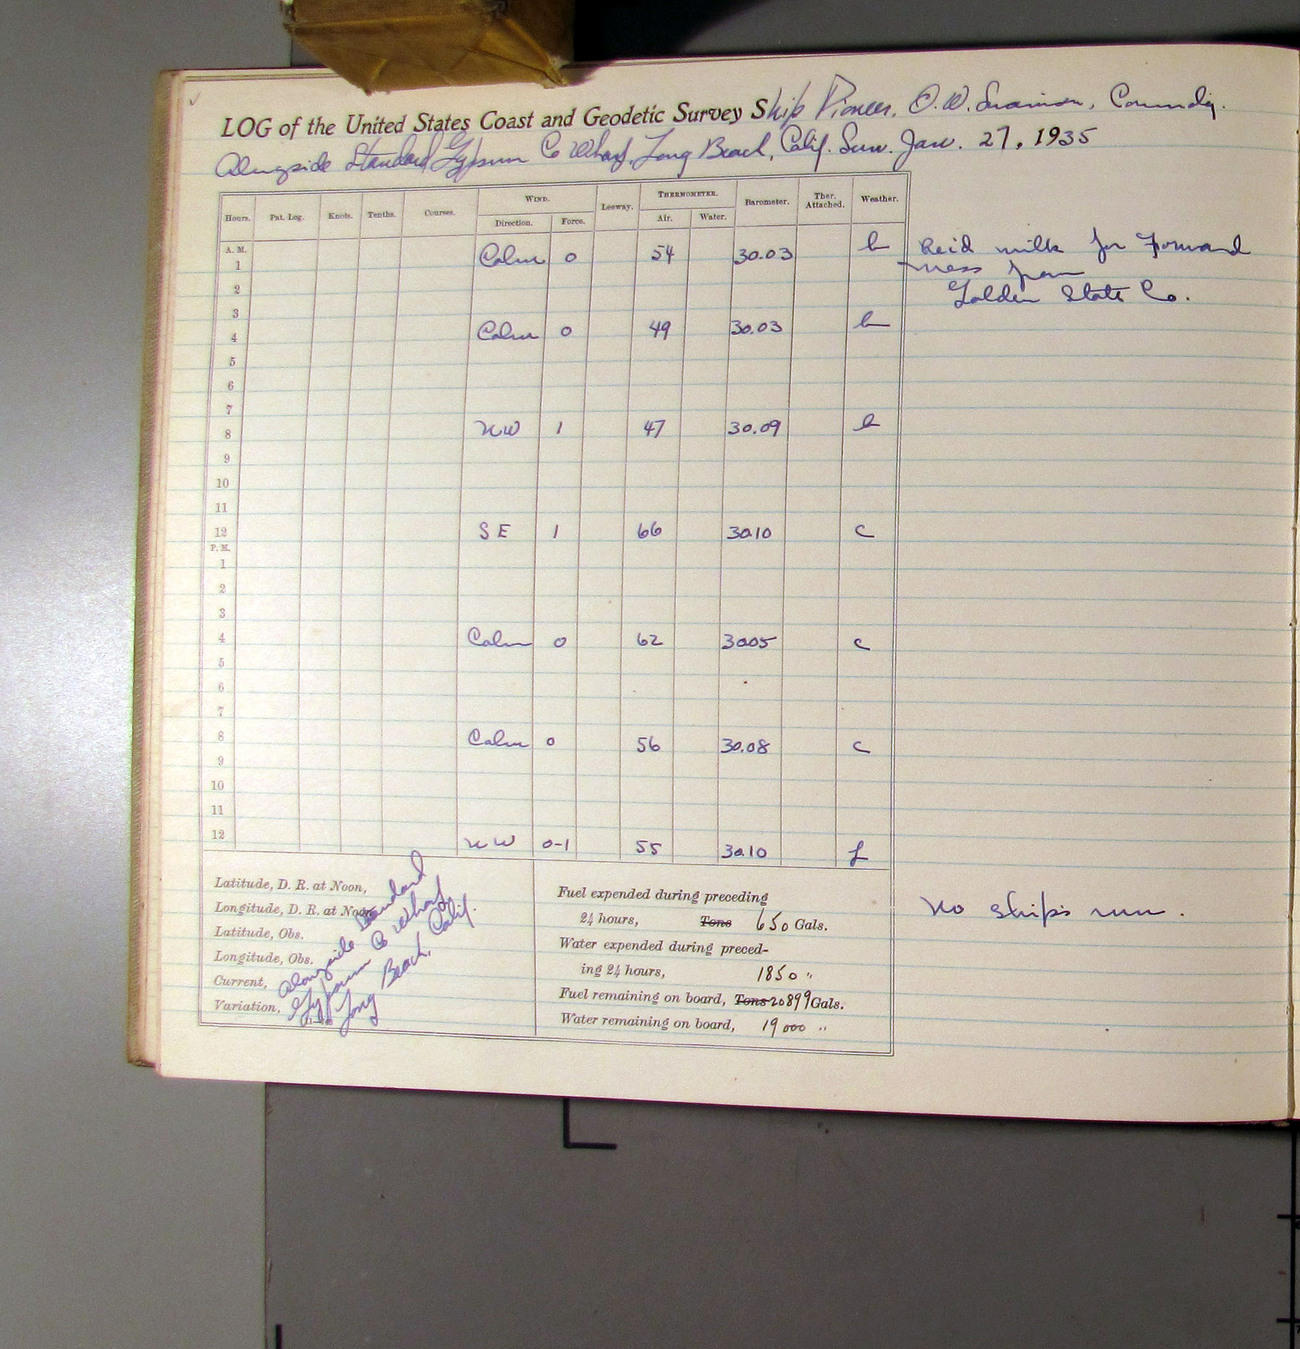 LOG of the United States Coast and Geodetic Survey Ship Pioneer, O.W. Swainson, Comm'dg.
Alongside Standard Gypsum Co Wharf, Long Beach, Calif. Sun. Jan. 27, 1935
Hours. Pat. Log. Knots. Tenths. Courses. WIND. Leeway. THERMOMETER. Barometer. Ther. Attached. Weather.
Direction. Force. Air. Water.
A. M.
1 Calm 0 54 30.03 b Rec'd milk for Forward
2 mess from
3 Golden State Co.
4 Calm 0 49 30.03 b
5
6
7
8 NW 1 47 30.09 b
9
10
11
12 SE 1 66 30.10 c
P. M.
1
2
3
4 Calm 0 62 30.05 c
5
6
7
8 Calm 0 56 30.08 c
9
10
11
12 NW 0-1 55 30.10 f
Latitude, D. R. at Noon,
Longitude, D. R. at Noon,
Latitude, Obs.
Longitude, Obs.
Current,
Variation,
Alongside Standard
Gypsum Co Wharf
Long Beach, Calif.
Fuel expended during preceding
24 hours, Tons 650 Gals.
Water expended during preced-
ing 24 hours, 1850 "
Fuel remaining on board, Tons 20899 Gals.
Water remaining on board, 19000 "
No ship's run.